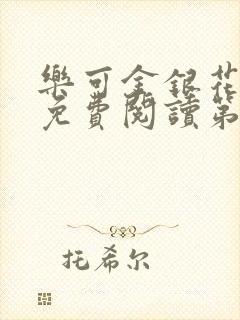 樂可金銀花
免費閱讀第
托希尔